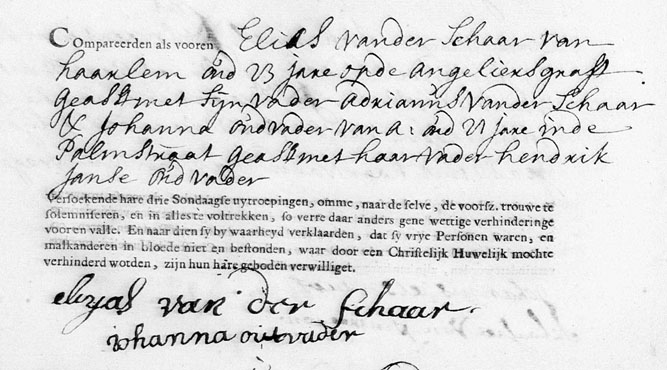 Compareerden als vooren Elias vander Schaar van
haarlem oud 23 jare op de Angeliersgraft
geass met sijn vader Adrianus vander Schaar
& Johanna oudvader van A: oud 21 jare inde
Palmstraat geass met haar vader hendrik
janse oudvader
Versoekende hare drie Sondaagse uytroepingen, omme, naar de selve, de voorsz. trouwe te
solemniseren, en in alles te voltrekken, so verre daar anders gene wettige verhinderinge
voor en valle. En naar dien sy by waarheyd verklaarden, dat sy vrye Personen waren, en
malkanderen in bloede niet en bestonden, waar door een Christelijk Huwelijk mochte
verhinderd worden, zijn hun hare geboden verwilliget.
elyas van der schaar.
iohanna outvader